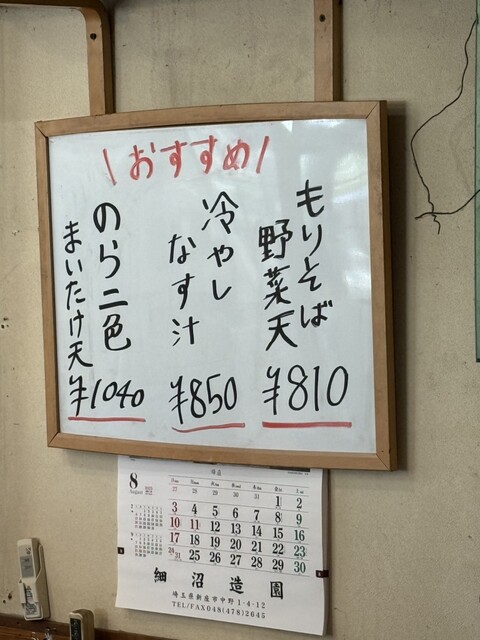 おすすめ
もりそば
野菜天
¥810
冷やし
なす汁
¥850
のら二色
まいたけ天
¥1040
8
August
27 28 29 30 31 1 2
3 4 5 6 7 8 9
10 11 12 13 14 15 16
17 18 19 20 21 22 23
24/31 25 26 27 28 29 30
細沼造園
埼玉県新座市中野1-4-12
TEL/FAX048(478)2645